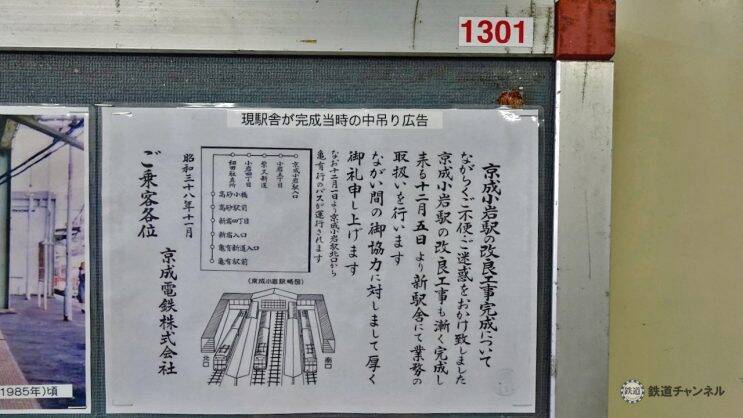 1301
現駅舎が完成当時の中吊り広告
京成小岩駅の改良工事完成について
ながらくご不便ご迷惑をおかけ致しました
京成小岩駅の改良工事も漸く完成し
来る十二月五日より新駅舎にて業務の
取扱いを行います
ながい間の御協力に対しまして厚く
御礼申し上げます
なお十二月一日より京成小岩駅北口から
亀有行のバスが運行されます
京成小岩駅入口
小岩五丁目
柴又新道
小岩四丁目
細田駐在所
高砂小橋
高砂駅前
新宿四丁目
新宿入口
亀有新道入口
亀有駅前
(京成小岩駅略図)
北口
南口
昭和三十八年十一月
京成電鉄株式会社
ご乗客各位
1985年)頃
鉄道
鉄道チャンネル